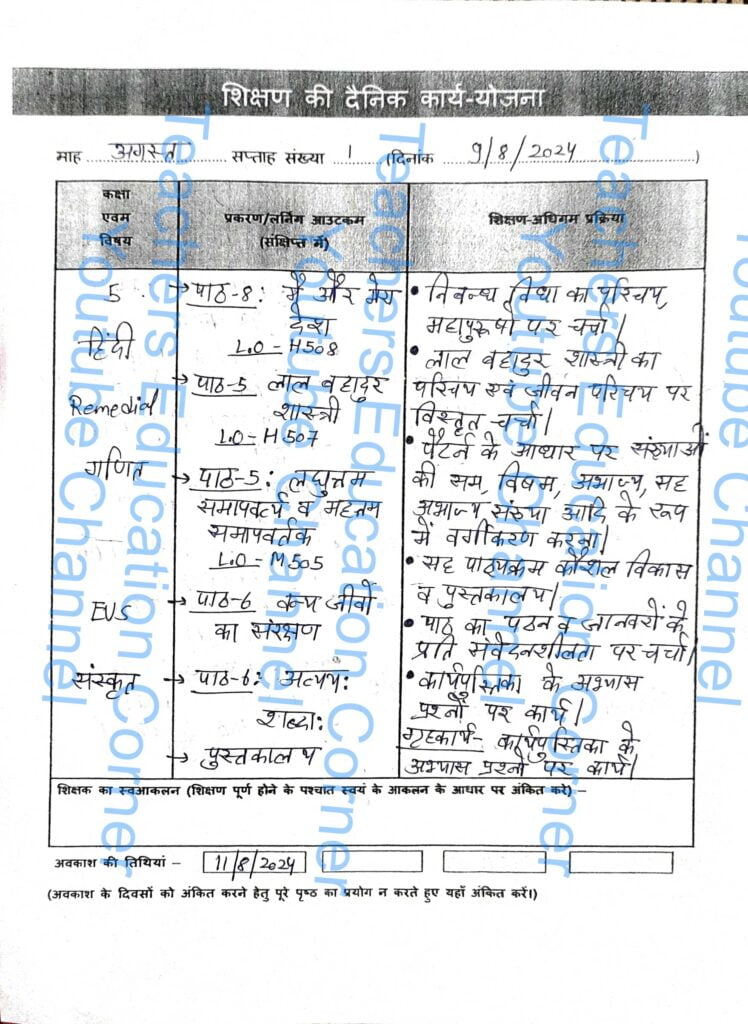 शिक्षण की दैनिक कार्य-योजना
माह अगस्त सप्ताह संख्या 1 (दिनांक 9/8/2024)
कक्षा
एवम
विषय
प्रकरण/लर्निंग आउटकम
(संक्षिप्त में)
शिक्षण-अधिगम प्रक्रिया
5
हिंदी
Remedial
गणित
EVS
संस्कृत
→ पाठ-8: मैं और मेरा
देश
L.O - H508
→ पाठ-5 लाल बहादुर
शास्त्री
L.O - H507
→ पाठ-5: लघुत्तम
समापवर्त्य व महत्तम
समापवर्तक
L.O - M505
→ पाठ-6 वन्य जीवों
का संरक्षण
→ पाठ-6: अव्यय:
शब्दा:
→ पुस्तकालय
• निबन्ध विधा का परिचय,
महापुरुषों पर चर्चा।
• लाल बहादुर शास्त्री का
परिचय एवं जीवन परिचय पर
विस्तृत चर्चा।
• पैटर्न के आधार पर संख्याओं
की सम, विषम, अभाज्य, सह
अभाज्य संख्या आदि के रूप
में वर्गीकरण करना।
• सह पाठ्यक्रम कौशल विकास
व पुस्तकालय।
• पाठ का पठन व जानवरों के
प्रति संवेदनशीलता पर चर्चा।
• कार्यपुस्तिका के अभ्यास
प्रश्नों पर कार्य।
गृहकार्य- कार्यपुस्तिका के
अभ्यास प्रश्नों पर कार्य।
शिक्षक का स्वआकलन (शिक्षण पूर्ण होने के पश्चात स्वयं के आकलन के आधार पर अंकित करे) –
अवकाश की तिथियां – 11/8/2024
(अवकाश के दिवसों को अंकित करने हेतु पूरे पृष्ठ का प्रयोग न करते हुए यहाँ अंकित करें।)
Teachers Education Corner
Youtube Channel
Teachers Education Corner
Youtube Channel
Teachers Education Corner
Youtube Channel